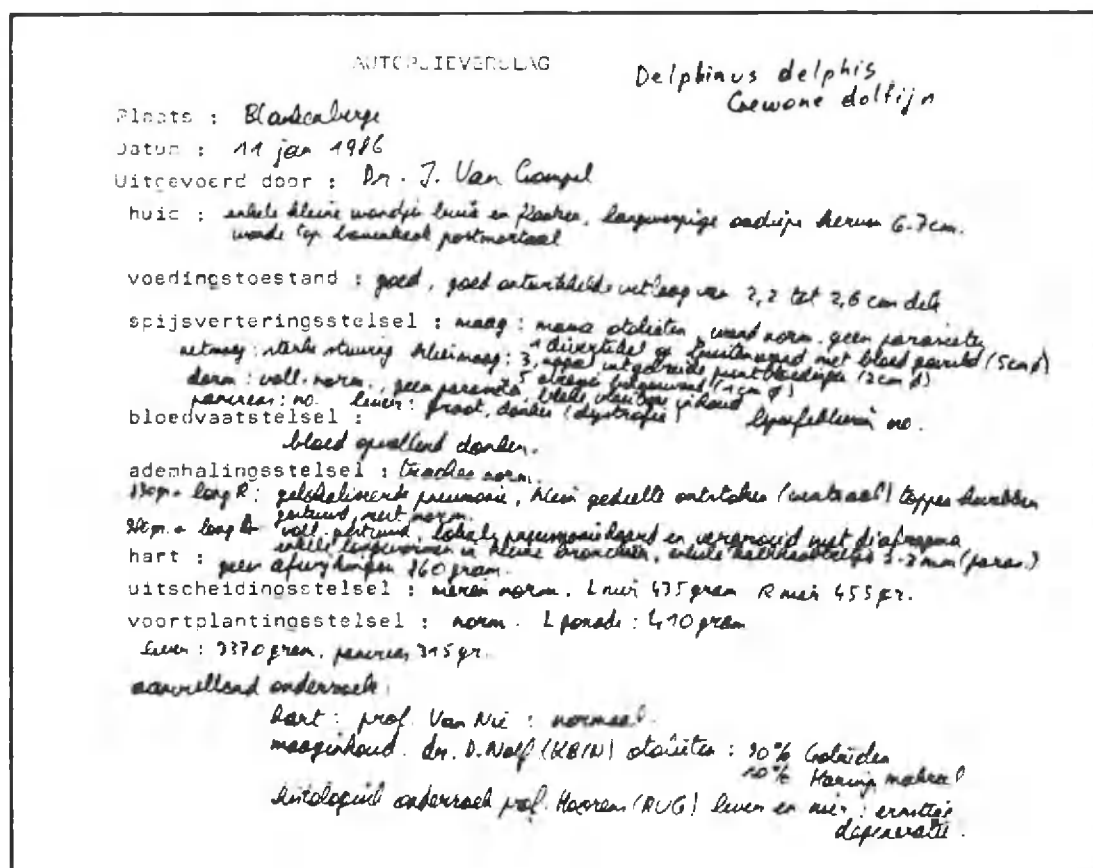 AUTOPSIEVERSLAG
Delphinus delphis
Gewone dolfijn
Plaats : Blankenberge
Datum : 11 jan 1986
Uitgevoerd door : Dr. J. Van Gompel
huid : enkele kleine wondjes buik en flanken, langwerpige ondiepe 6-7cm.
wonde top bovenkaak postmortaal
voedingstoestand : goed, goed ontwikkelde vetlaag van 2,2 tot 2,6 cm dik
spijsverteringsstelsel : maag : massa otolieten, wand norm. geen parasieten
netmaag : sterke stuwing 3, 1 divertikel op met bloed gevuld (5cm ø)
(2cm ø)
darm : voll. norm., geen parasiet, (1cm ø) inhoud
pancreas : no. lever : groot, donker (dystrofie) no.
bloedvaatstelsel :
bloed opvallend donker.
ademhalingsstelsel : trachea norm.
long R : pneumonie, klein gedeelte ontstoken (ventraal) toppen
gestuwd, rest norm.
long L voll. gestuwd, en vergroeid met diafragma
enkele longwormen in kleine bronchiën, enkele 2-3 mm (paras.)
hart : geen afwijkingen 860 gram.
uitscheidingsstelsel : nieren norm. L nier 435 gram R nier 455 gr.
voortplantingsstelsel : norm. L gonade : 410 gram
Lever : 3370 gram, pancreas 315 gr.
aanvullend onderzoek :
hart : prof. Van Nie : normaal.
maaginhoud. dr. D. Nolf (KBIN) otolieten : 90% Gobiiden
10% Haring makreel
histologisch onderzoek prof. Hoorens (RUG) lever en nier : ernstige
degeneratie.